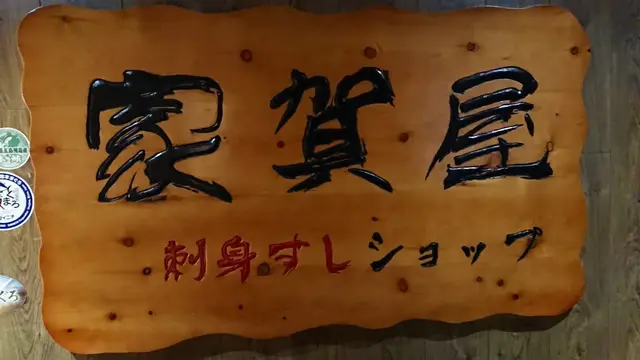 家賀屋
刺身すしショップ
くろ